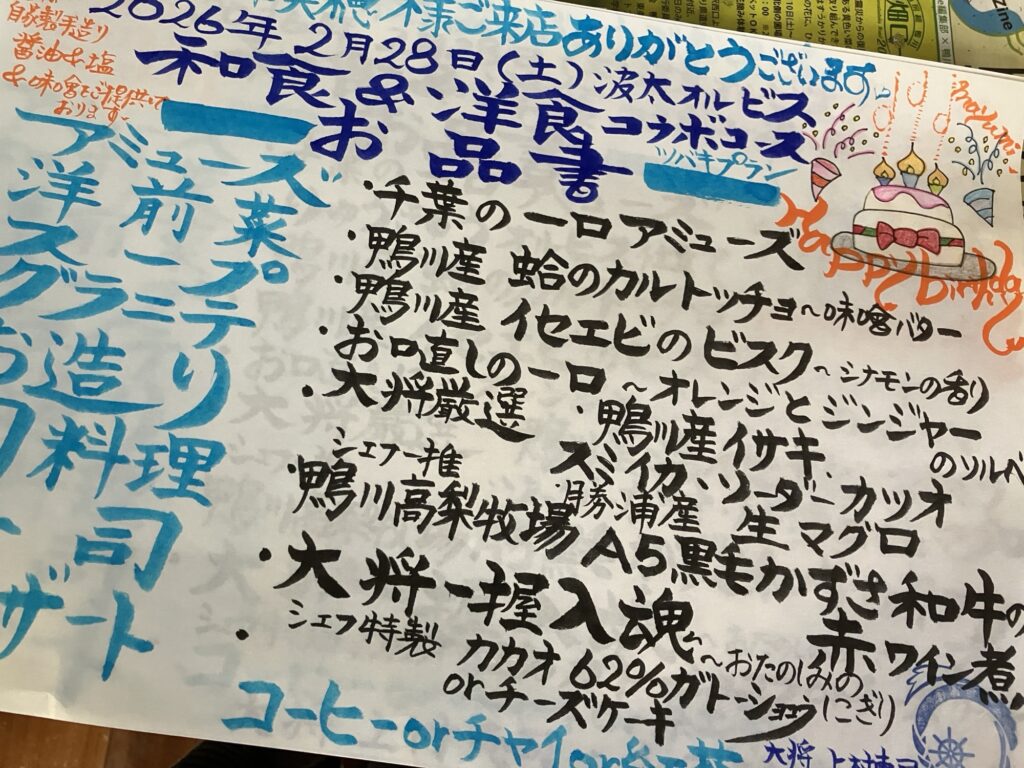 様ご来店ありがとうございます。
2026年2月28日(土)波太オルビス
和食&洋食コウボコース
お品書
ツバキプラン
自家製手造り
醤油&塩
&味噌をご提供して
おります。
mayumi
Happy birthday
アミューズ
洋前菜
スープ
グラニテ
お造り
料理
司
ザート
・千葉の一口アミューズ
・鴨川産 蛤のカルトッチョ~味噌バター
・鴨川産 イセエビのビスク~シナモンの香り
・お口直しの一口~オレンジとジンジャーのソルベ
・大将厳選・鴨川産イサキ.
スミイカ.ソーダーカツオ
・勝浦産 生マグロ
シェフ一推
鴨川高梨牧場A5黒毛かずさ和牛の
赤ワイン煮
・大将一握入魂~おたのしみのにぎり
・シェフ特製 カカオ62%ガトーショコラ
orチーズケーキ
コーヒーorチャイor紅茶
大将